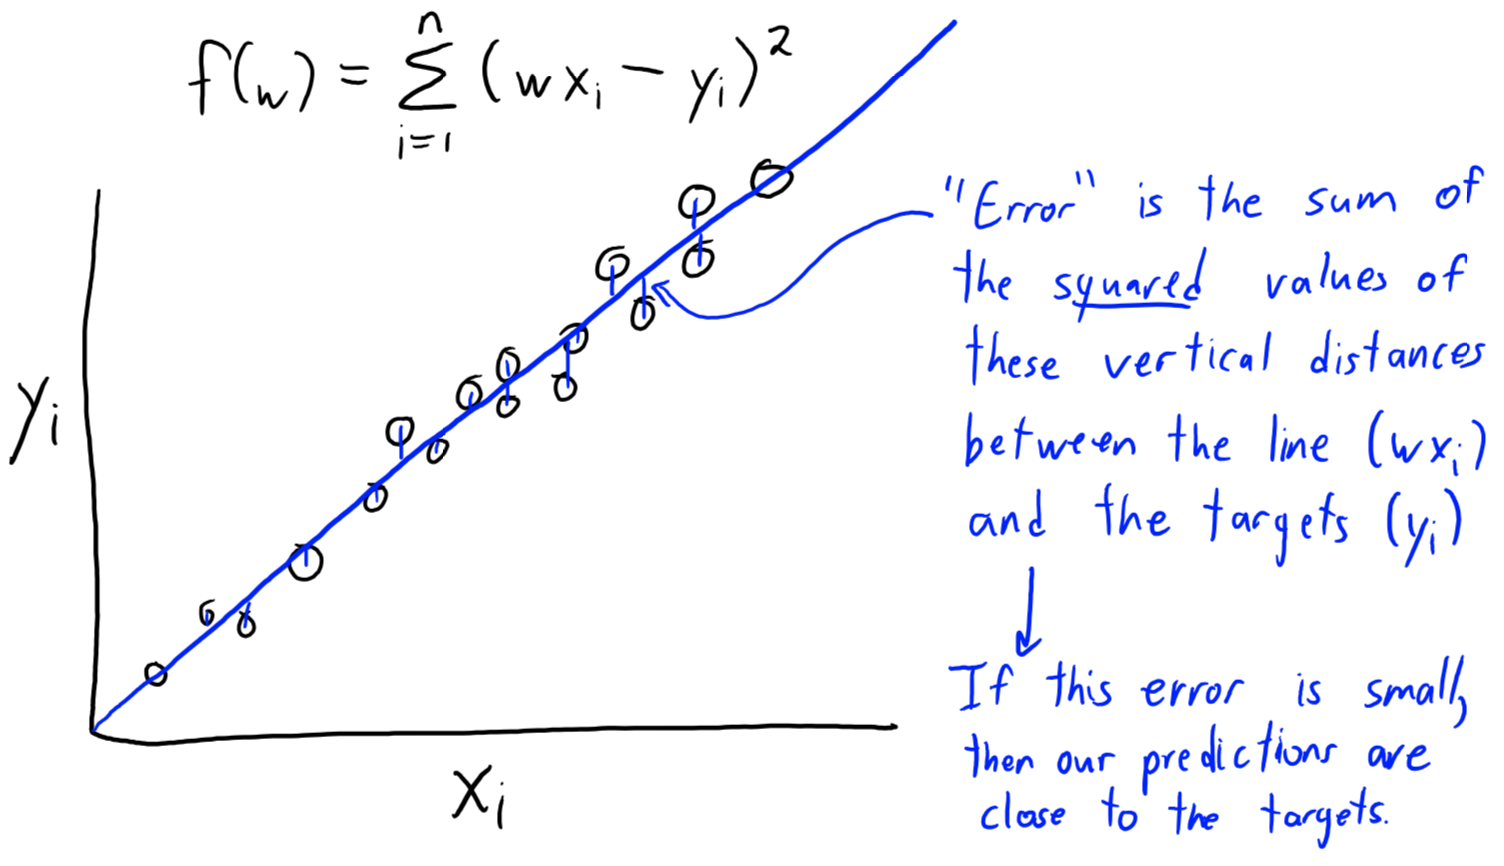 f(w) = n∑i=1 (wxᵢ - yᵢ)²
"Error" is the sum of
the squared values of
these vertical distances
between the line (wxᵢ)
and the targets (yᵢ)
If this error is small,
then our predictions are
close to the targets.
yᵢ
xᵢ